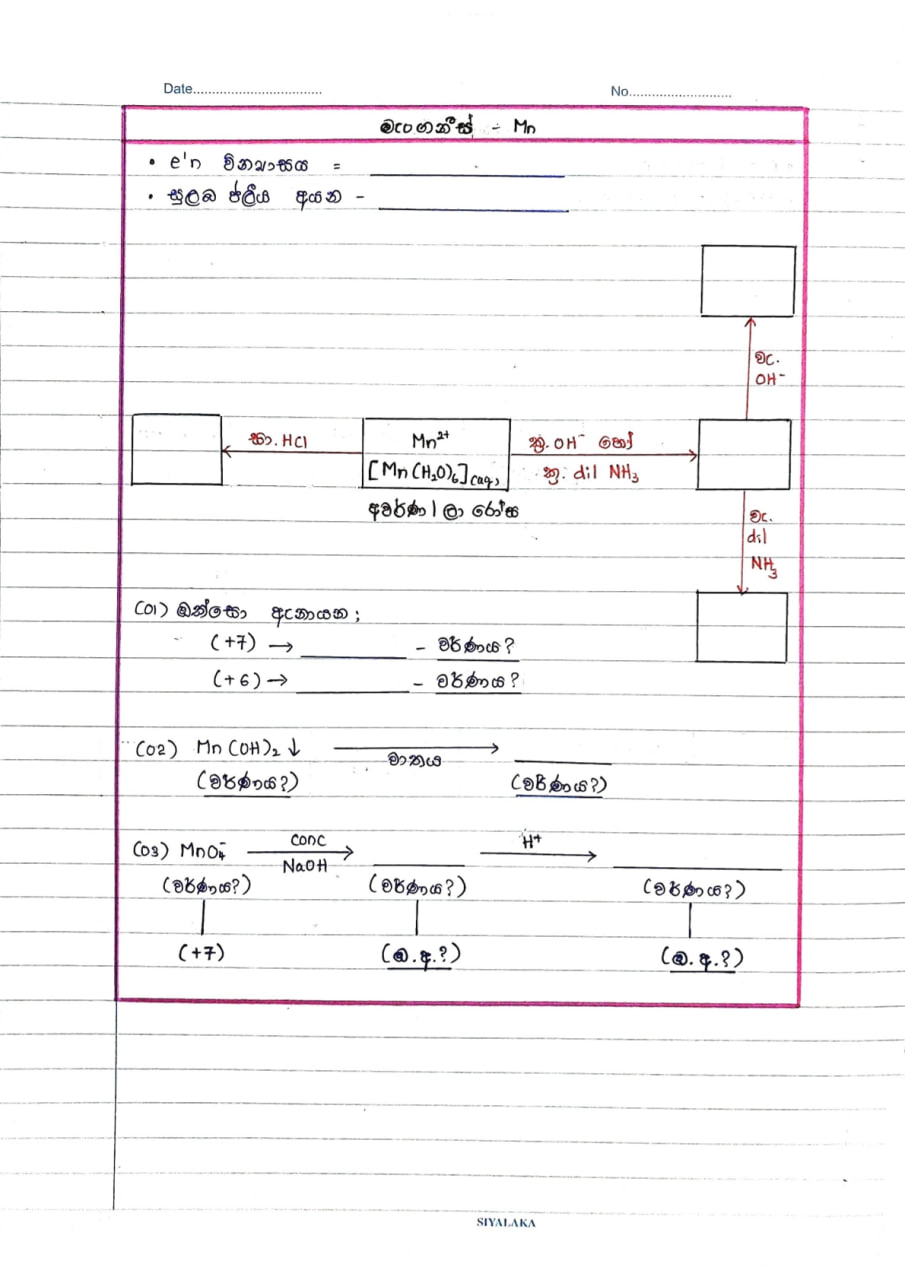 Date................................ No...........................
මැංගනීස් - Mn
• e'n වින්‍යාසය = __________
• සුලබ ප්ලීය අයන - __________
වැ.
OH⁻
සා.HCl
Mn²⁺
[Mn(H₂O)₆](aq)
අවර්ණ / ලා රෝස
ක්‍ෂු.OH⁻ හෝ
ක්‍ෂු. dil NH₃
වැ.
dil
NH₃
(01) ඔක්සො ඇනායන ;
(+7) → __________ - වර්ණය?
(+6) → __________ - වර්ණය?
(02) Mn(OH)₂↓ → __________
වාතය
(වර්ණය?) (වර්ණය?)
(03) MnO₄⁻ conc NaOH → __________ H⁺ → __________
(වර්ණය?) (වර්ණය?) (වර්ණය?)
(+7) (ඔ.අ.?) (ඔ.අ.?)
SIYALAKA